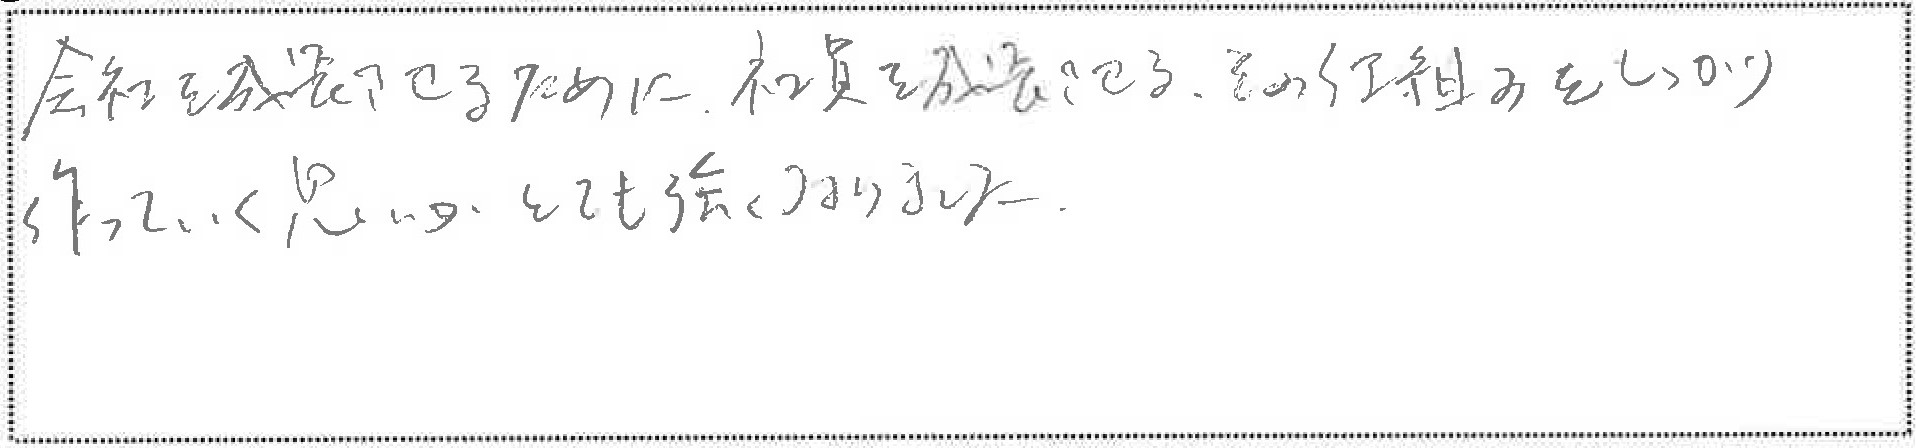 会社を成長させるために、社員を成長させる、その仕組みをしっかり
作っていく思いが、とても強くなりました。